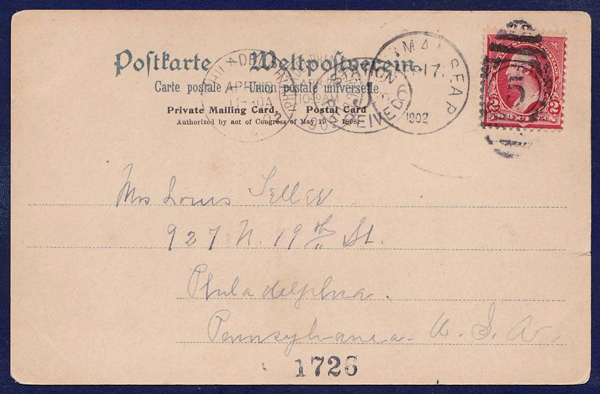 Postkarte — Weltpostverein.
Carte postale — Union postale universelle.
Private Mailing Card. Postal Card
Authorized by act of Congress of May 19 1898.
1902
2 2
Mrs Louis Teller
927 N. 19th St.
Philadelphia.
Pennsylvania. U. S. A.
1726